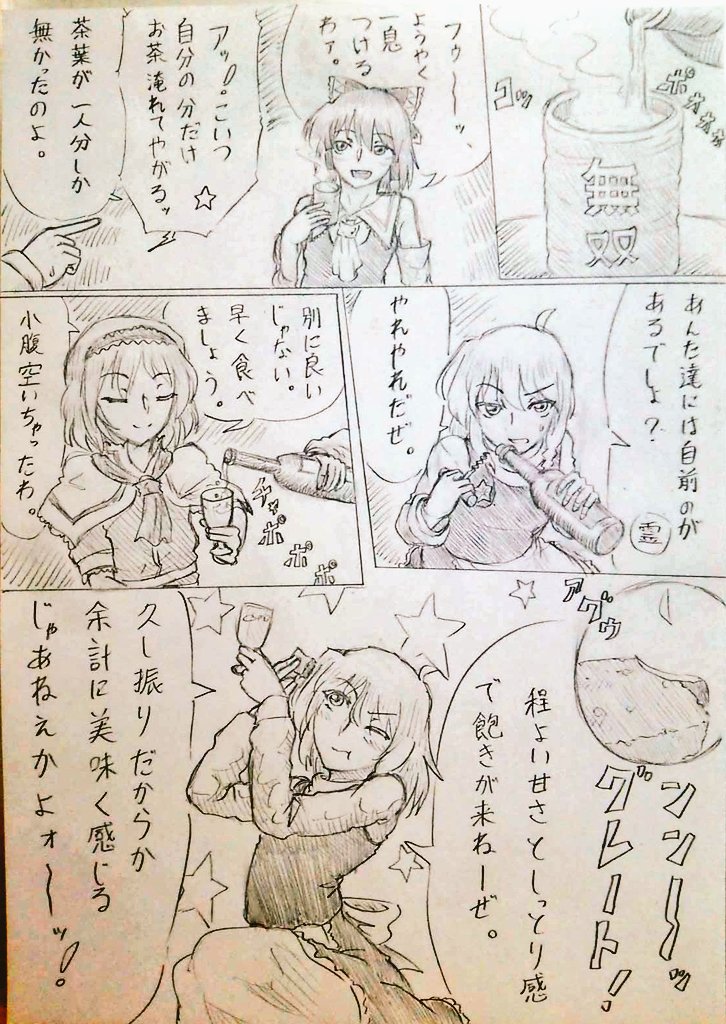 ボボボボ
コッ
無双
フゥ〜ッ、
ようやく
一息
つける
わァ。
アッ!こいつ
自分の分だけ
お茶淹れてやがるッ
茶葉が一人分しか
無かったのよ。
あんた達には自前のが
あるでしょ?
霊
やれやれだぜ。
別に良い
じゃない。
早く食べ
ましょう。
チャポポポ
小腹空いちゃったわ。
アグゥ
ンン〜ッ
グレート!
程よい甘さとしっとり感
で飽きが来ねーぜ。
久し振りだからか
余計に美味く感じる
じゃあねえかよォ〜ッ!